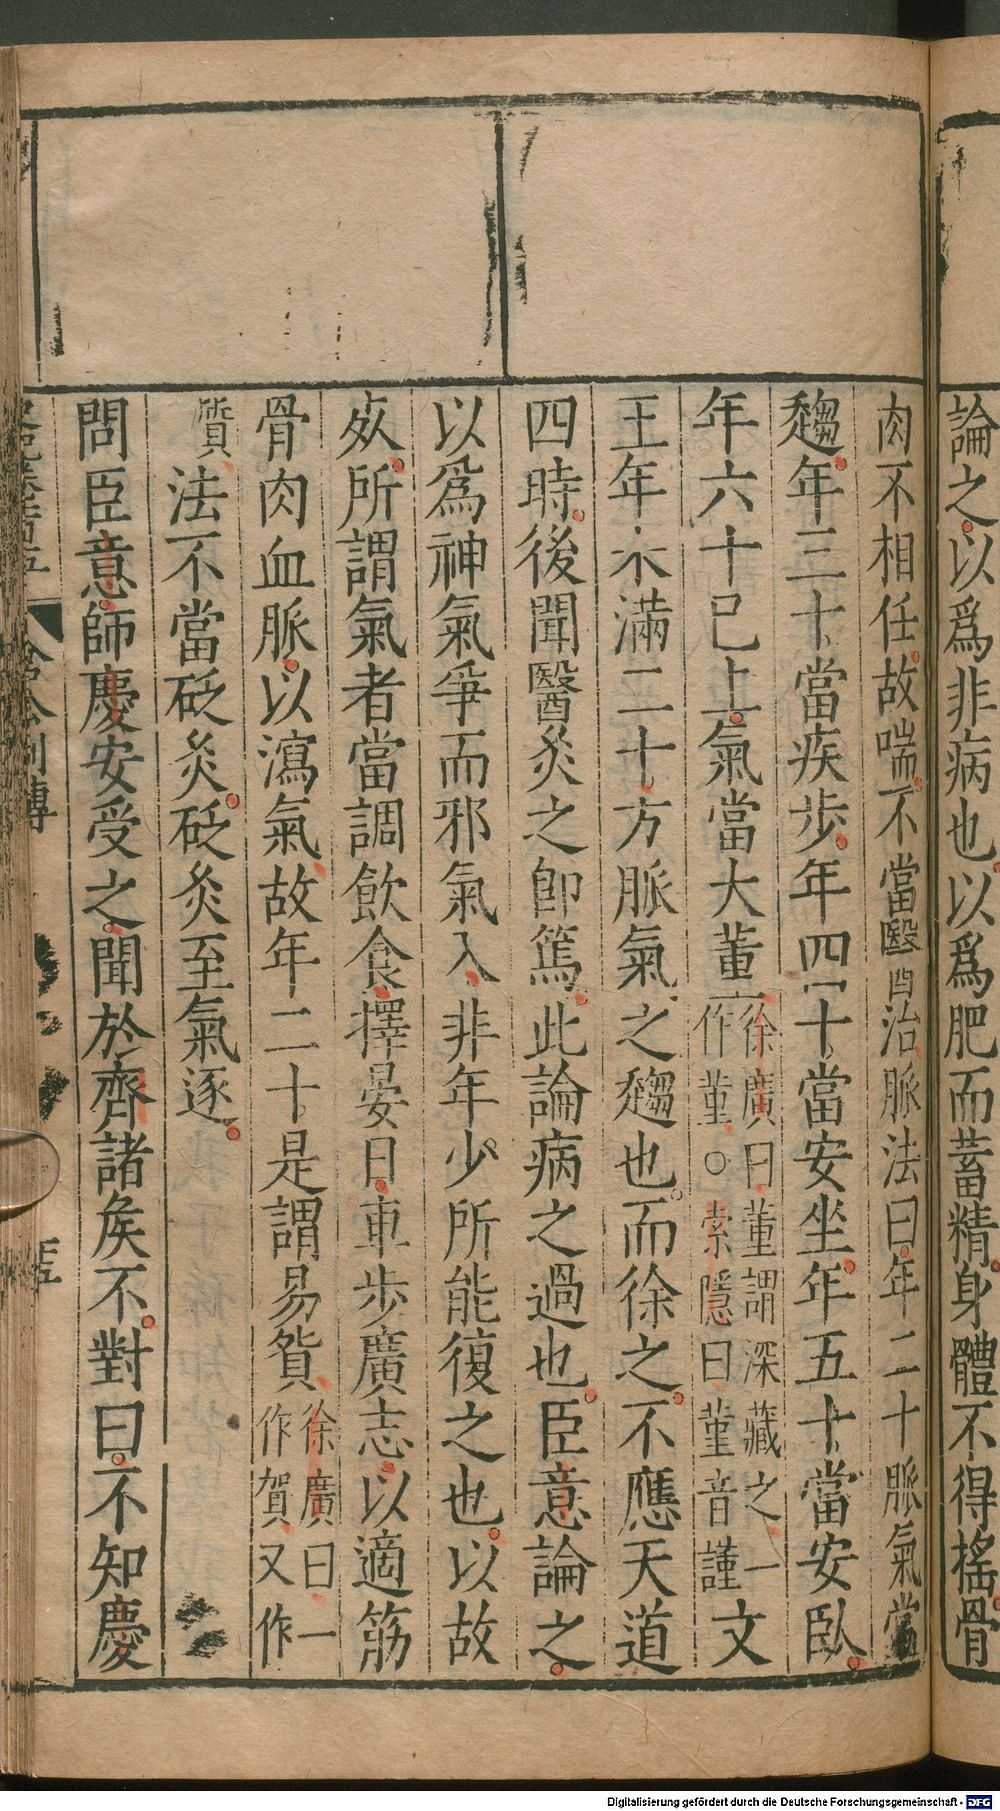 論之以爲非病也以爲肥而蓄精身體不得搖骨
肉不相任故喘不當醫治脈法曰年二十脈氣當
趨年三十當疾步年四十當安坐年五十當安臥
年六十已上氣當大董徐廣曰董謂深藏之一作堇○索隱曰堇音謹文
王年未滿二十方脈氣之趨也而徐之不應天道
四時後聞醫灸之卽篤此論病之過也臣意論之
以爲神氣爭而邪氣入非年少所能復之也以故
死所謂氣者當調飲食擇晏日車步廣志以適筋
骨肉血脈以瀉氣故年二十是謂易貿徐廣曰一作賀又作
質法不當砭灸砭灸至氣逐
問臣意師慶安受之聞於齊諸侯不對曰不知慶
倉公列傳
Digitalisierung gefördert durch die Deutsche Forschungsgemeinschaft - DFG